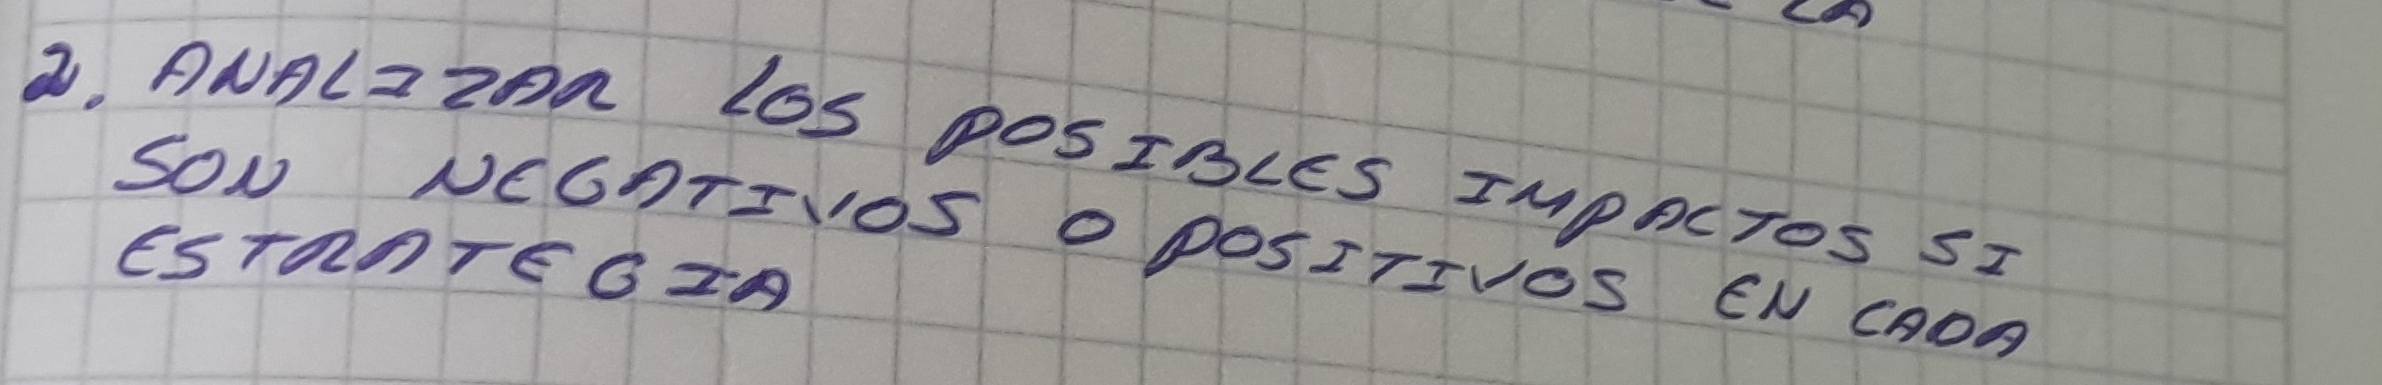 LA
2. ANALIZAR LOS POSIBLES IMPACTOS SI
SON NEGATIVOS O POSITIVOS EN CADA
ESTRATEGIA